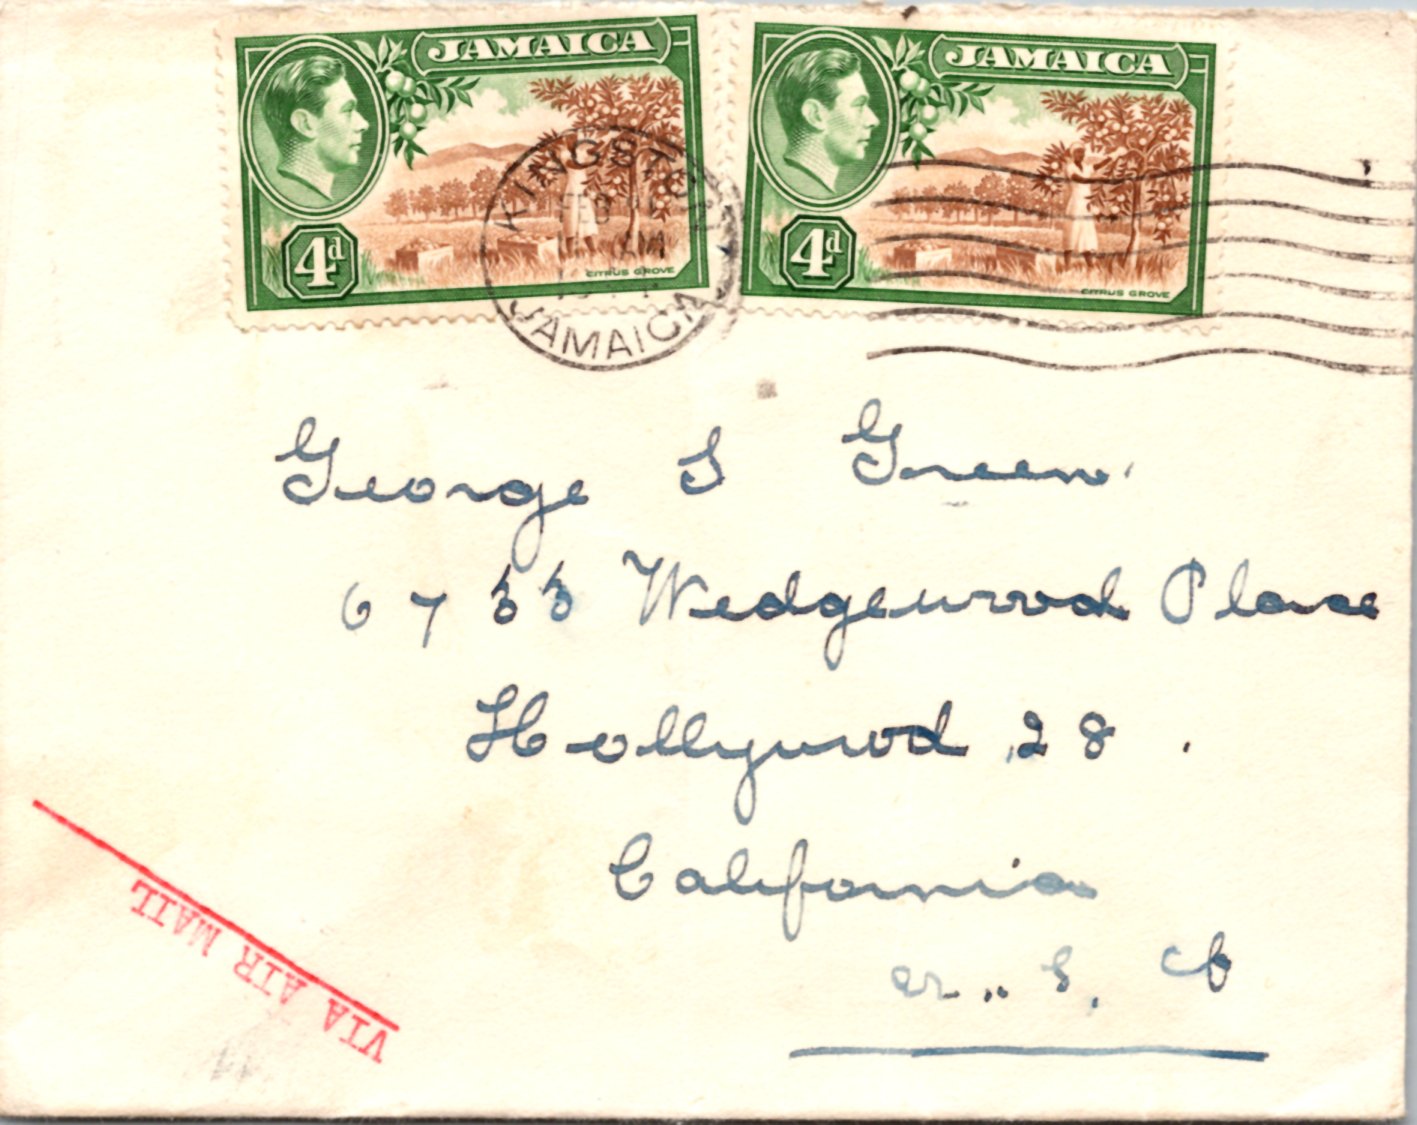 JAMAICA
4d
CITRUS GROVE
JAMAICA
4d
CITRUS GROVE
KINGSTON
FEB
JAMAICA
George S Green
6733 Wedgewood Place
Hollywood 28.
California
U.S.A
VIA AIR MAIL